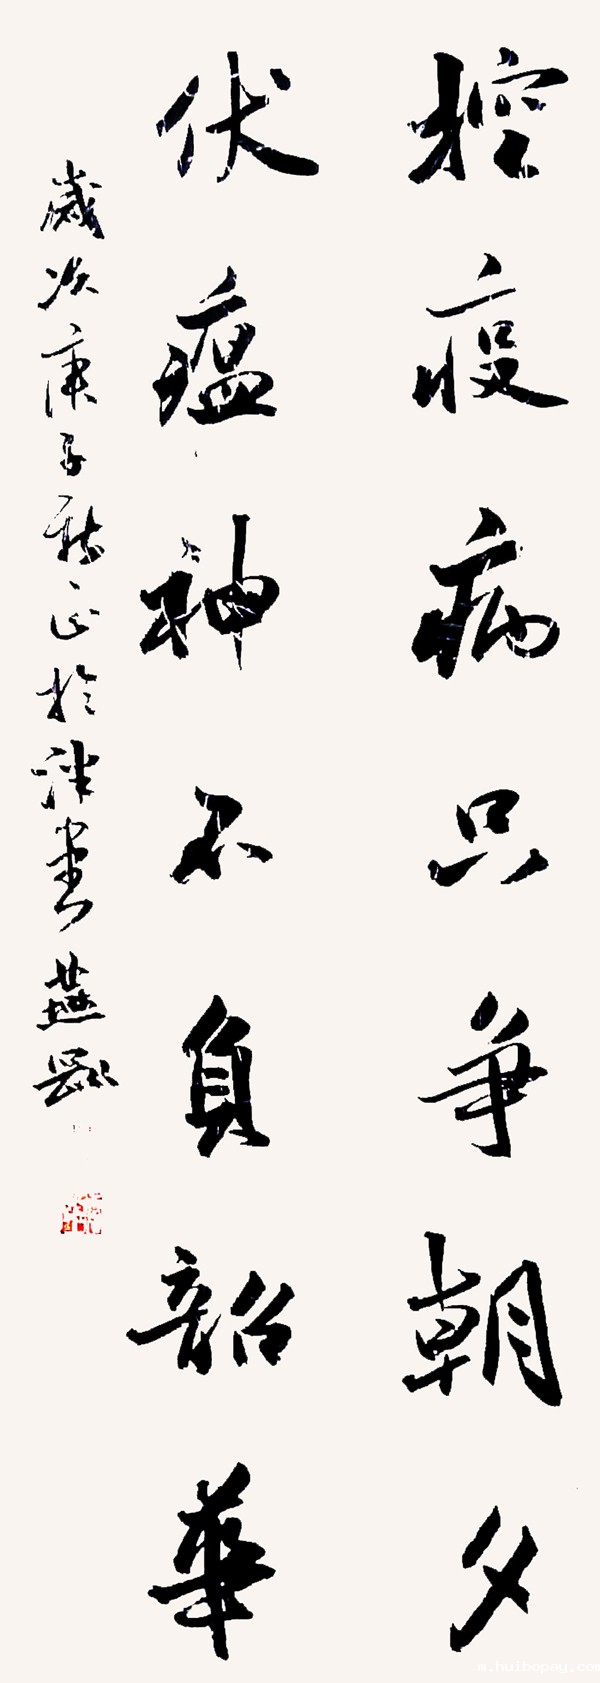 控疫病只争朝夕
伏瘟神不負韶華
歲次庚子新正於津書燕
m.huibopay.com